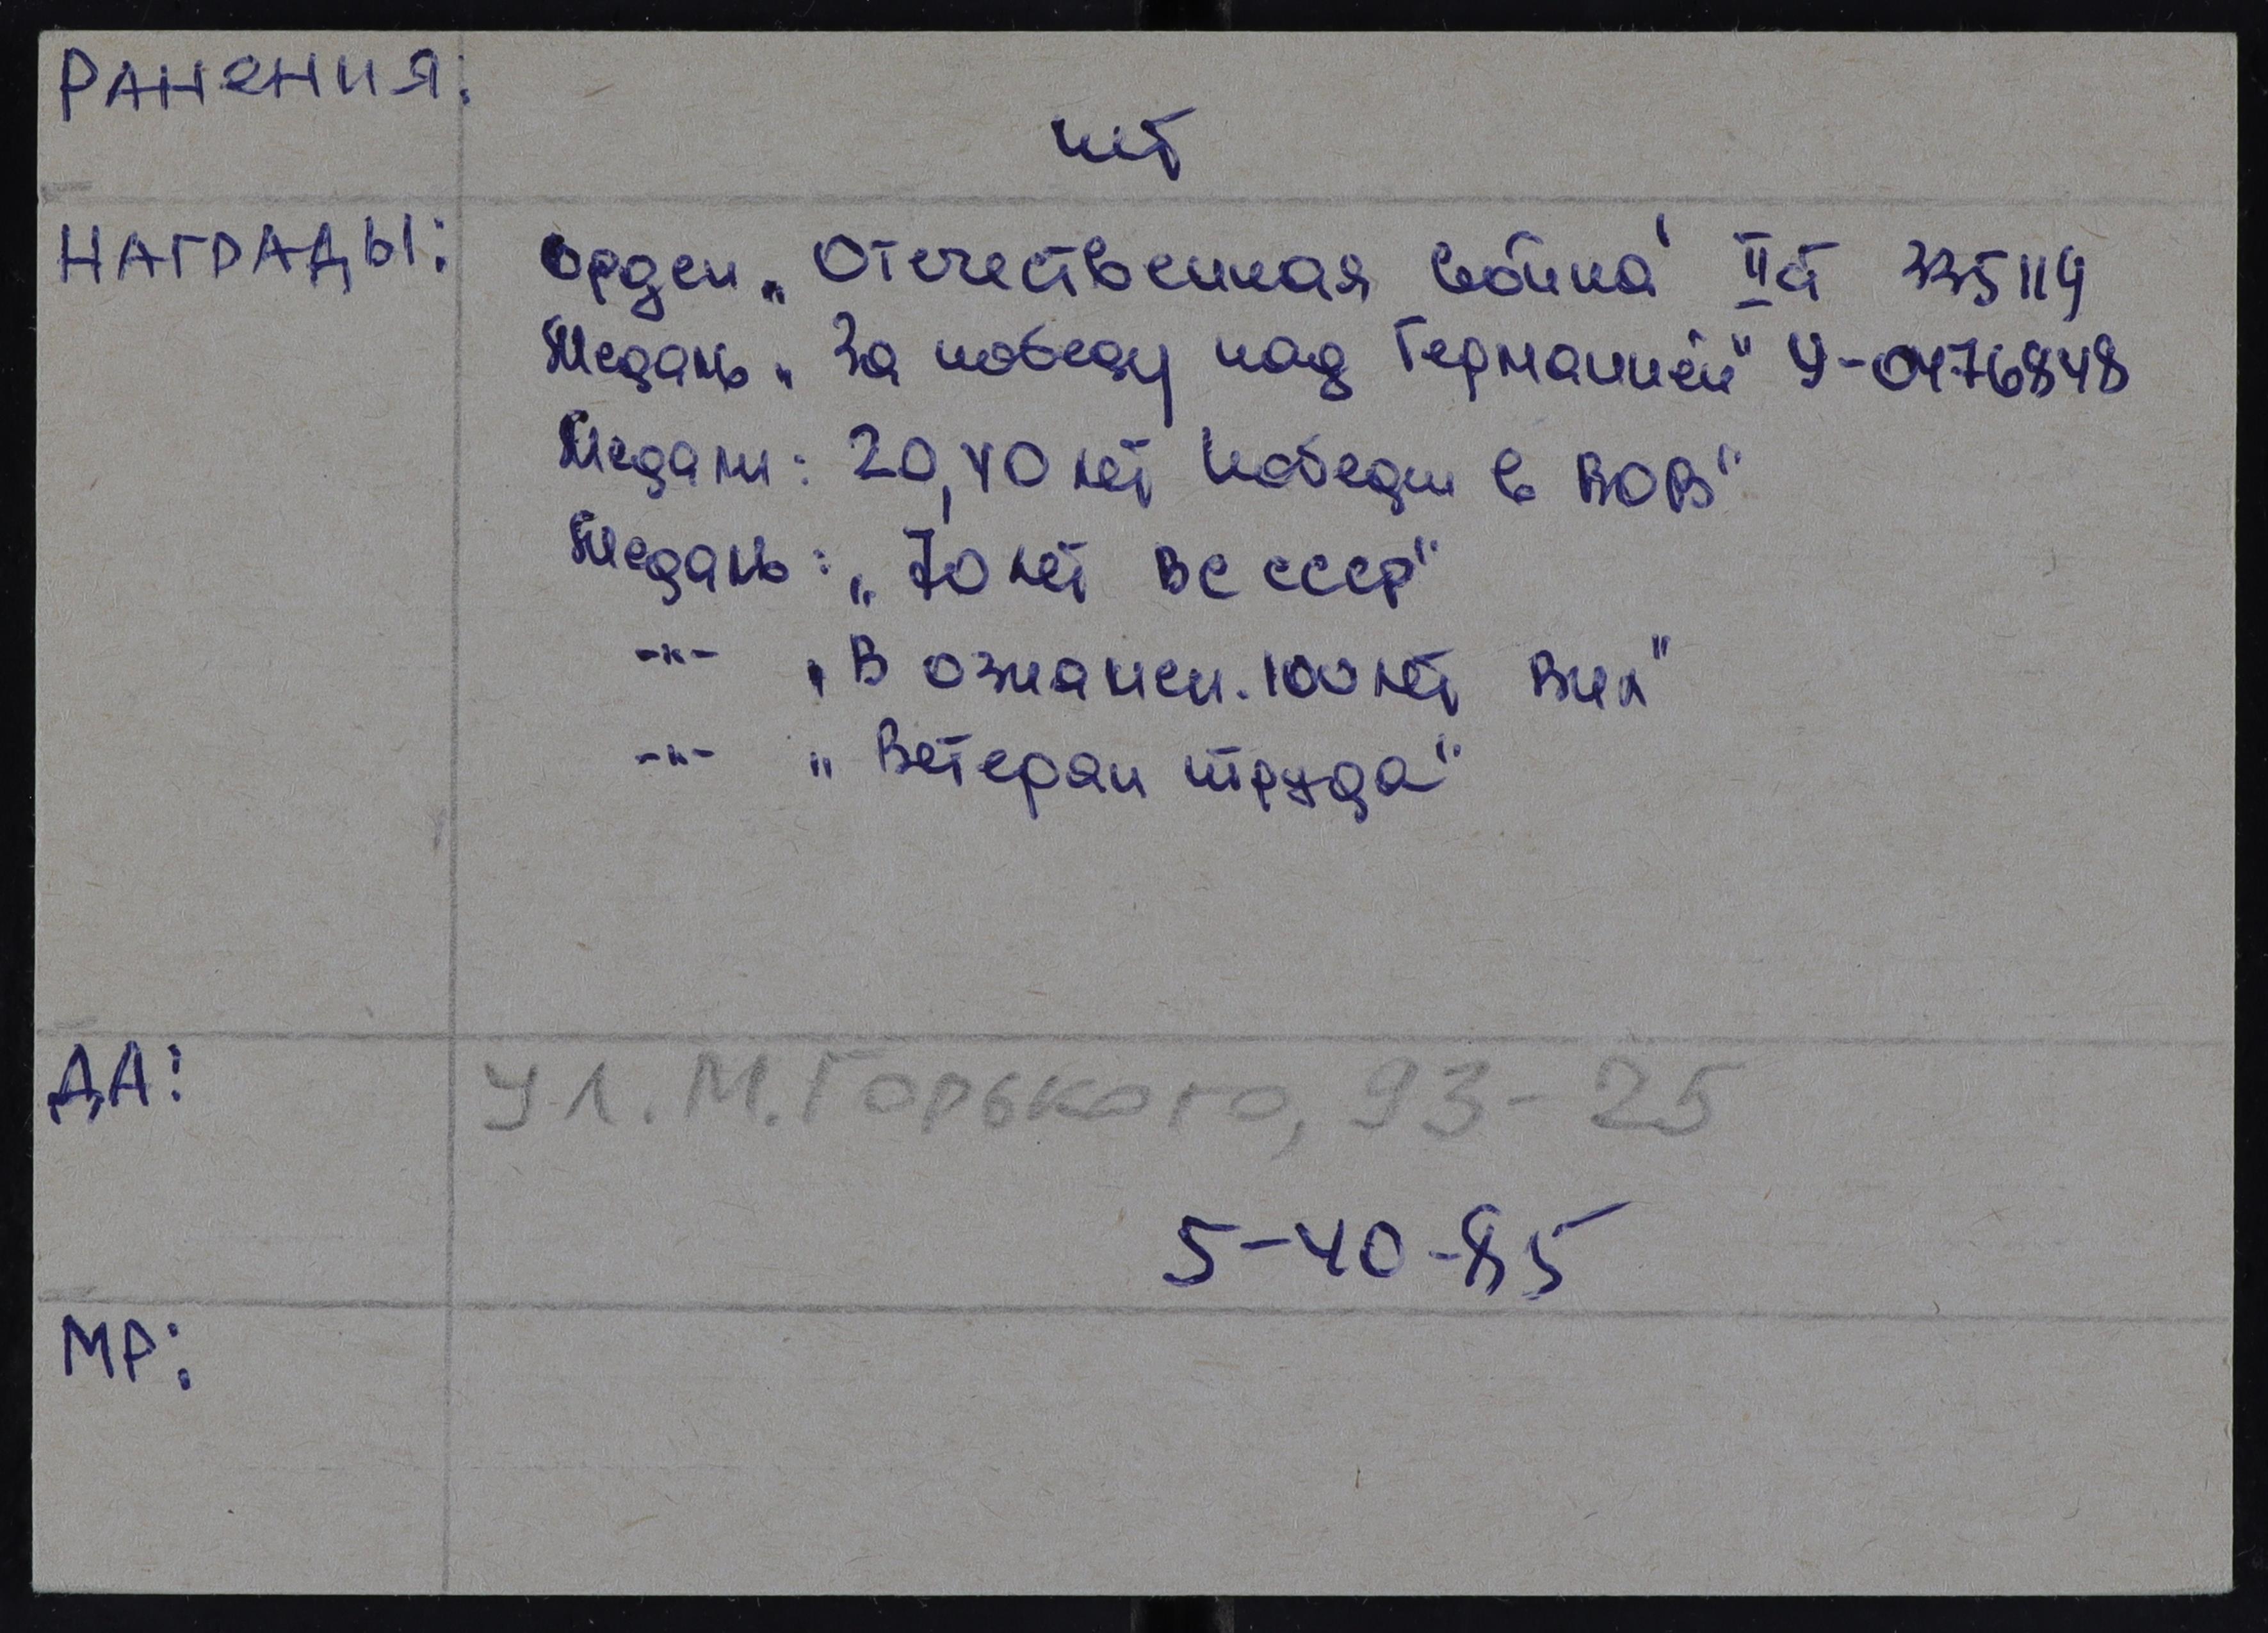 РАНЕНИЯ:
нет
НАГРАДЫ: Орден „Отечественная война" II ст 335119
Медаль „За победу над Германией" У-0476848
Медали: 20, 40 лет Победы в ВОВ"
Медаль: „70 лет ВС СССР"
-"- „В ознамен. 100 лет ВИЛ"
-"- „Ветеран труда"
ДА: ул. М. Горького, 93-25
5-40-85
МР: